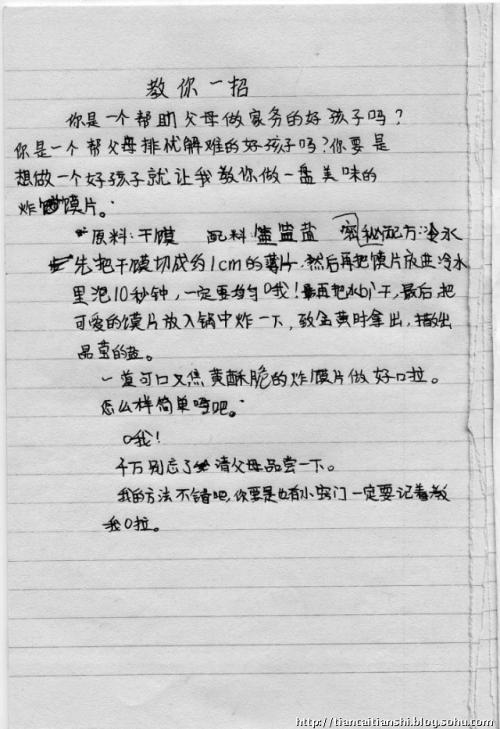 教你一招
你是一个帮助父母做家务的好孩子吗？
你是一个帮父母排忧解难的好孩子吗？你要是
想做一个好孩子就让我教你做一盘美味的
炸馍片。
原料：干馍 配料：盐 秘配方：冷水
先把干馍切成约1cm的薄片，然后再把馍片放进冷水
里泡10秒钟，一定要均匀0我！再把水bì干，最后，把
可爱的馍片放入锅中炸一下，致金黄时拿出，撒出
品蓝的盐。
一道可口又焦黄酥脆的炸馍片做好0拉。
怎么样简单吧。
0我！
千万别忘了请父母品尝一下。
我的方法不错吧，你要是也有小窍门一定要记着教
我0拉。
http://tiancaitianshi.blog.sohu.com